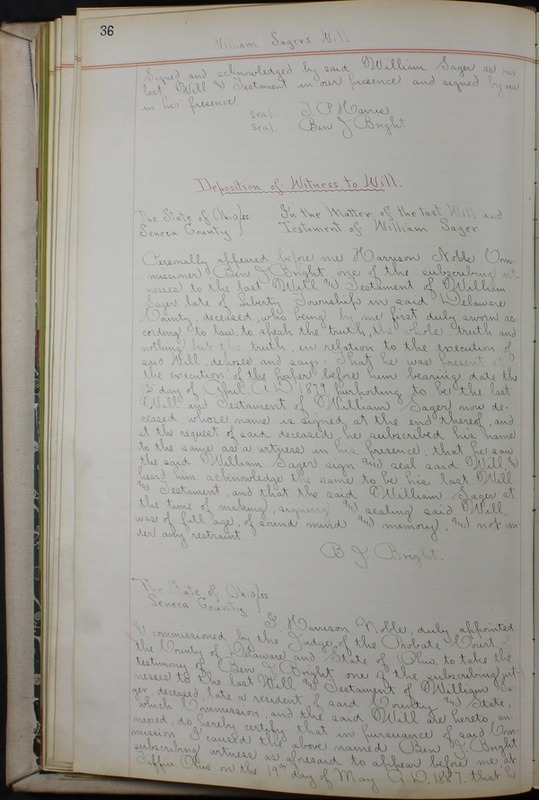 36
William Sagers Will
Signed and acknowledged by said William Sager as his
last Will & Testament in our presence and signed by us
in his presence
seal J P Harris
seal Ben J Bright
Deposition of Witness to Will.
The State of Ohio/ss In the Matter of the last Will and
Seneca County Testament of William Sager
Personally appeared before me Harrison Noble Com-
missioner Ben J Bright, one of the subscribing wit-
nesses to the last Will and Testament of William
Sager late of Liberty Township in said Delaware
County, deceased, who being by me first duly sworn ac-
cording to law, to speak the truth, the whole truth and
nothing but the truth, in relation to the execution of
said Will, deposes and says: That he was present at
the execution of the paper before him bearing date the
day of April A.D. 1879 purporting to be the last
Will and Testament of William Sager now de-
ceased, whose name is signed at the end thereof, and
at the request of said deceased, he subscribed his name
to the same as a witness in his presence, that he saw
the said William Sager sign and seal said Will &
heard him acknowledge the same to be his last Will
and Testament, and that the said William Sager at
the time of making, signing and sealing said Will,
was of full age, of sound mind and memory, and not un-
der any restraint.
B J Bright.
The State of Ohio/ss
Seneca County
I Harrison Noble, duly appointed
& commissioned by the Judge of the Probate Court of
the County of Delaware and State of Ohio, to take the
testimony of Ben J Bright one of the subscribing wit-
nesses to the last Will and Testament of William Sa-
ger deceased late a resident of said County and State,
which Commission, and the said Will are hereto, an-
nexed, do hereby certify that in pursuance of said Com-
mission I caused the above named Ben J Bright
subscribing witness as aforesaid to appear before me, at
Tiffin Ohio on the 19th day of May A.D. 1887. that he